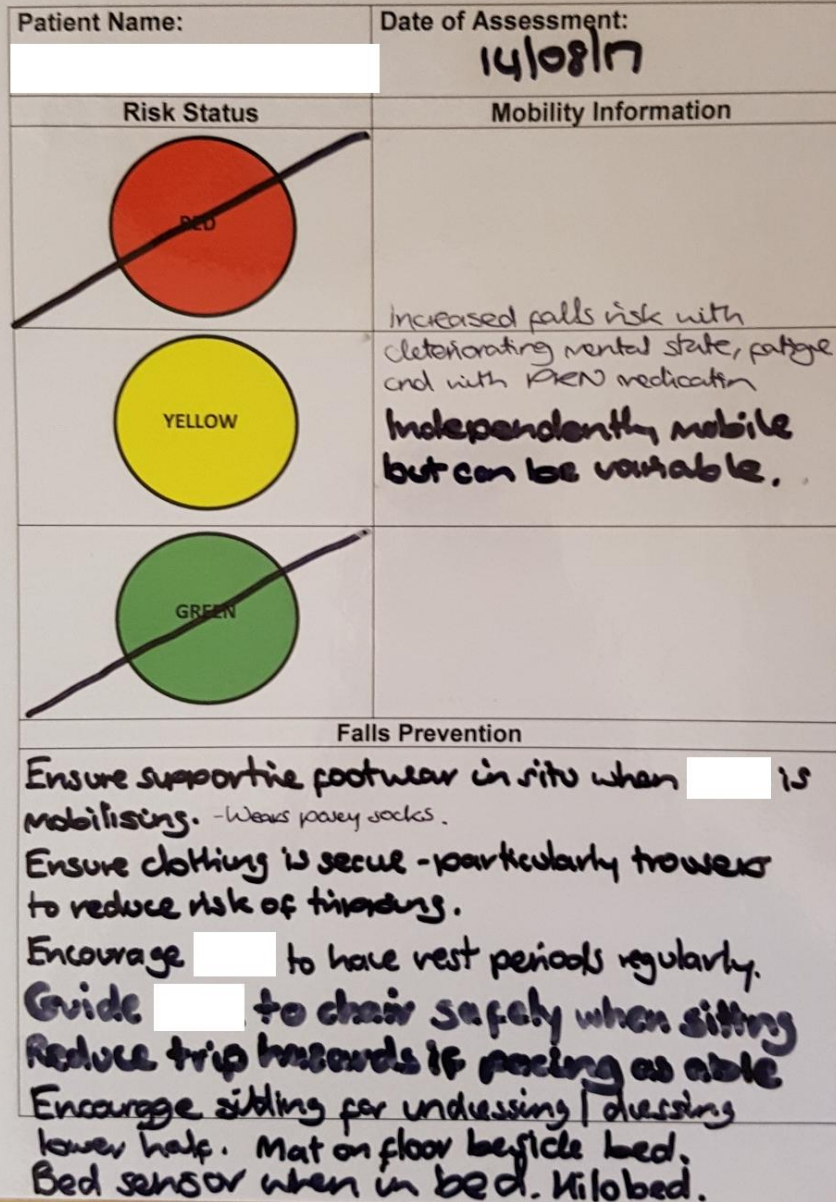 Patient Name:
Date of Assessment:
14/08/17
Risk Status
Mobility Information
RED
Increased falls risk with
deteriorating mental state, fatigue
and with PRN medication
YELLOW
Independently mobile
but can be variable.
GREEN
Falls Prevention
Ensure supportive footwear in situ when is
mobilising. - Wears posey socks.
Ensure clothing is secure - particularly trousers
to reduce risk of tripping.
Encourage to have rest periods regularly.
Guide to chair safely when sitting
Reduce trip hazards if pacing as able
Encourage sitting for undressing / dressing
lower half. Mat on floor beside bed.
Bed sensor when in bed. Hilobed.